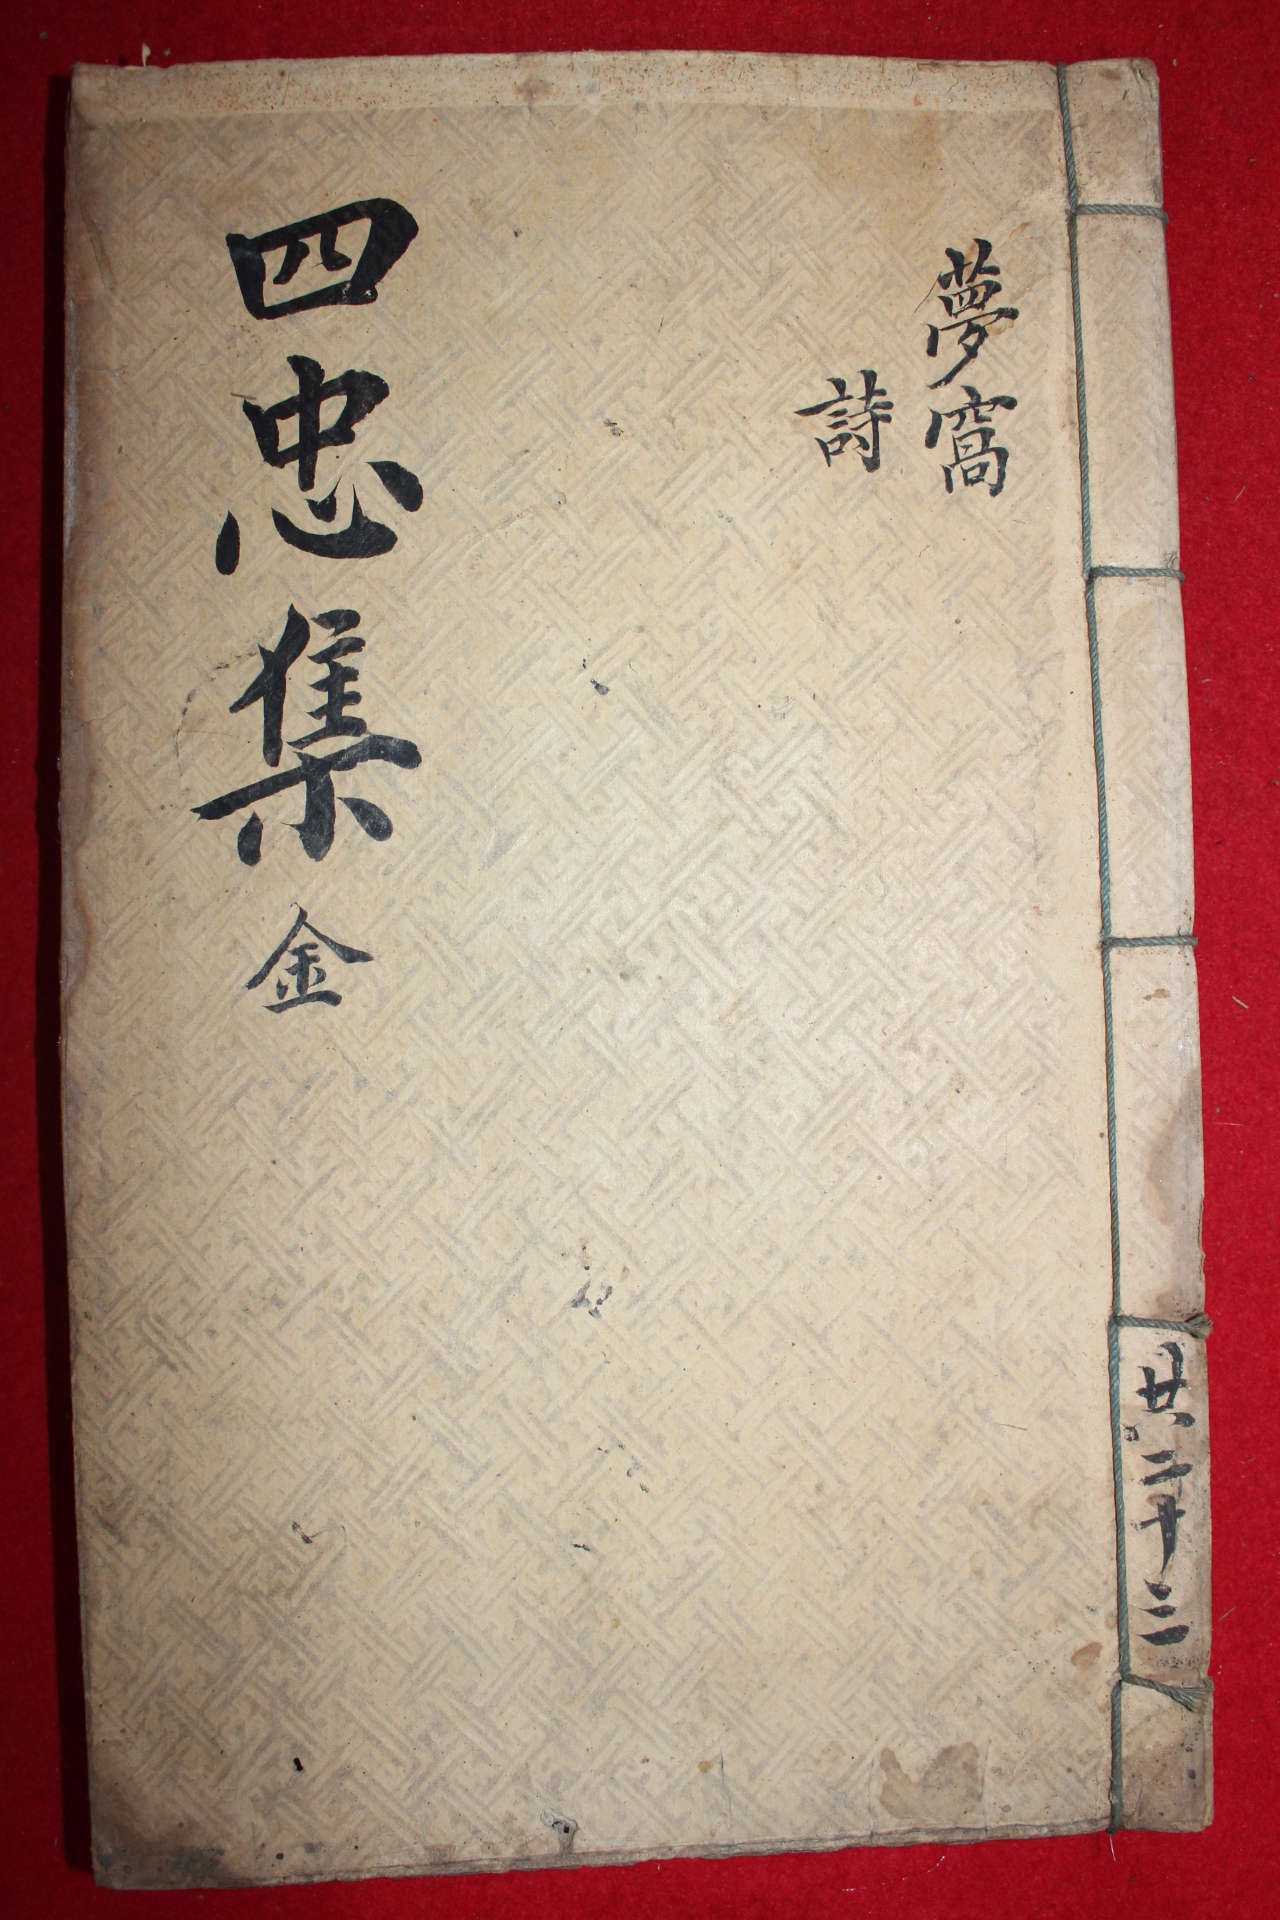 夢窩
詩
四忠集 金
共二十三